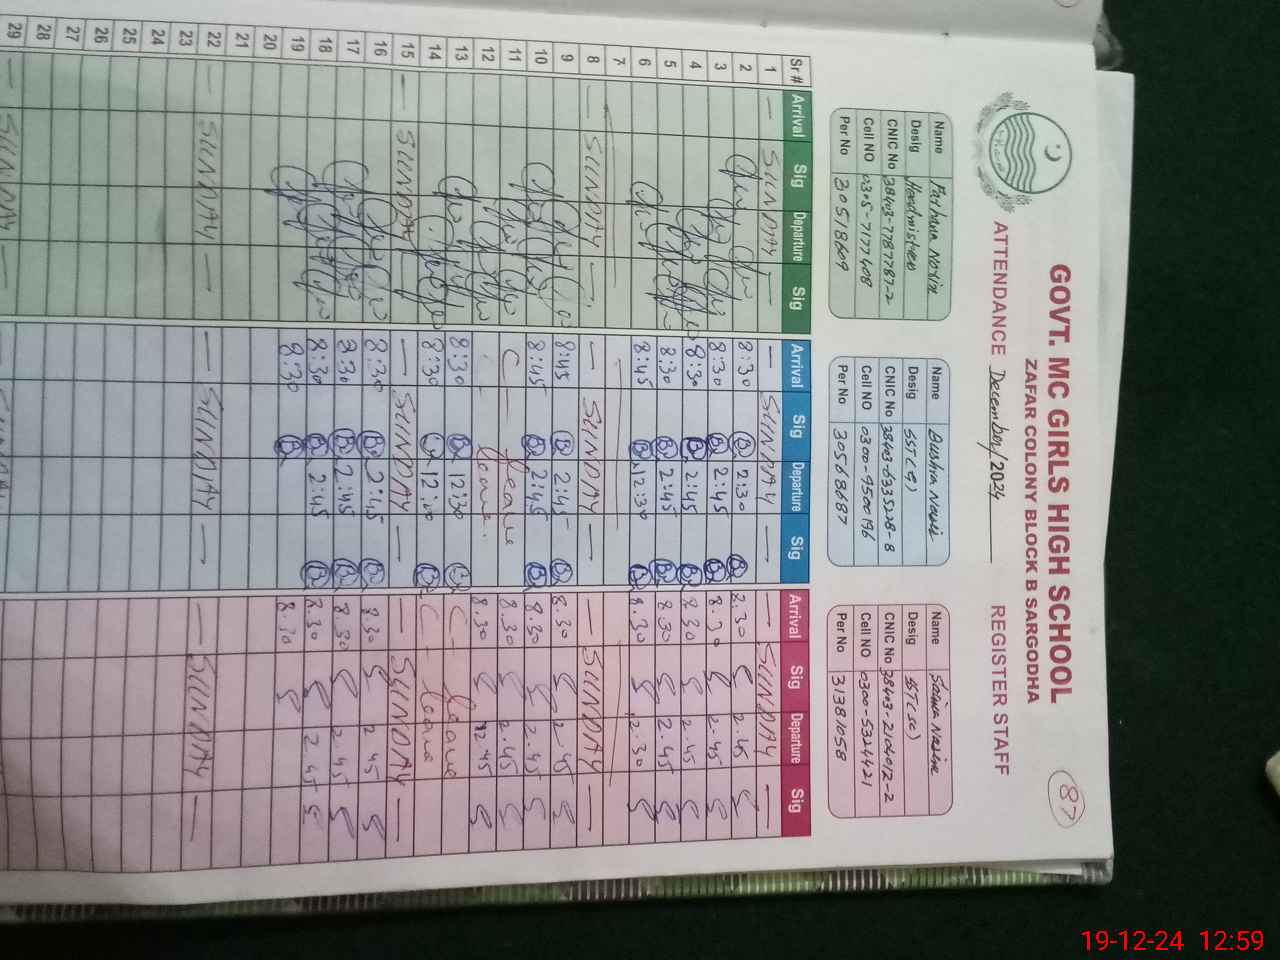 87
GOVT. MC GIRLS HIGH SCHOOL
ZAFAR COLONY BLOCK B SARGODHA
ATTENDANCE December/2024 REGISTER STAFF
Name Farhana
Desig Headmistress
CNIC No
Cell NO 0305-7177408
Per No 30518609
Name Bushra
Desig SST(G)
CNIC No 38403-6335228-8
Cell NO 0300-9500196
Per No 30568687
Name Saima
Desig SST(SC)
CNIC No 38403-2104012-2
Cell NO 0300-5324421
Per No 31381058
Sr # Arrival Sig Departure Sig Arrival Sig Departure Sig Arrival Sig Departure Sig
1 — SUNDAY — — SUNDAY — — SUNDAY —
2 8:30 2:30 8.30 2.45
3 8:30 2:45 8.30 2.45
4 8:30 2:45 8.30 2.45
5 8:30 2:45 8.30 2.45
6 8:45 12:30 8.30 2.30
7
8 — SUNDAY — — SUNDAY — — SUNDAY —
9 8:45 2:45 8.30 2.45
10 8:45 2:45 8.30 2.45
11 C — Leave 8.30 2.45
12 Leave 8.30 12.45
13 8:30 12:30 C — Leave
14 8:30 C — Leave
15 — SUNDAY — — SUNDAY — — SUNDAY —
16 8:30 2:45 8.30 2.45
17 8:30 2:45 8.30 2.45
18 8:30 2:45 8.30 2.45
19 8:30 8.30
20
21
22 — SUNDAY — — SUNDAY — — SUNDAY —
23
24
25
26
27
28
29 — SUNDAY —
19-12-24 12:59